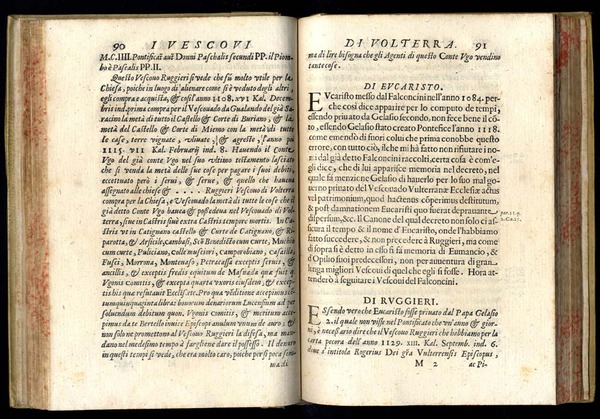 90 I VESCOVI
M.C.IIII. Pontificat. aut̃ Domni Paschalis secundi PP. il Piom
bo è Pascalis PP. II.
Questo Vescouo Ruggieri si vede che fù molto vtile per la
Chiesa, poiche in luogo di alienare come si è veduto degli altri,
egli compra e acquista, & così l'anno 1108. XVI Kal. Decem-
bris ind. prima compra per il Vescouado da Gualando del già Sa
racino la metà di tutto il Castello & Corte di Buriano, & la
metà del Castello & Corte di Mieno con la metà di tutte
le case, terre vignate, vliuate, & agreste, l'anno poi
1115. VII Kal. Februarij ind. 8. Hauendo il Conte
Vgo del già conte Vgo nel suo vltimo testamento lasciato
che si venda la metà delle sue case per pagare i suoi debiti,
eccettuato però i serui, & serue, & quello che haueua
assegnato alle chiese & . . . . . Ruggieri Vescouo di Volterra
compra per la Chiesa, e Vescouado la metà di tutte le case che il
già detto Conte Vgo haueua & possedeua nel Vescouado di Vol-
terra, siue in Castris siue extra Castris tempore mortis. In Ca
stris vt in Catignano castello & Corte de Catignano, & Ri
parotta, & Arsicile, cambasi, Sc̃i Benedicto cum curte, Mucchio
cum curte, Puliciano, Colle musciori, camporbiano, Casasli,
Fusci, Morrma, Montemj, Petracassa exceptis seruis, &
ancillis, & exceptis
Vgonis Comitis, & excepta quarta vxoris eiusdem, & excep-
tis his quæ
tumquinquaginta librar. bonorum denariorum Lucensium ad per
soluendum debitum quon. Vgonis Comitis, & meritum accepi-
mus da te Bertello
non solo ne promettono al Vescouo Ruggieri la difesa, ma man-
dano nel medesimo tempo à fargliene dare il possesso. Il denaro
in questi tempi si vede, che era molto caro, poiche per sì poca som-
ma di
DI VOLTERRA. 91
ma di lire bisogna che gli Agenti di questo Conte Vgo vendino
tante cose.
DI EVCARISTO.
EVcaristo messo dal Falconcini nell'anno 1084. per-
che così dice apparire per lo computo de tempi,
essendo priuato da Gelasio secondo, non fece bene il cõ-
to, essendo Gelasio stato creato Pontefice l'anno 1118.
come emendò di fuori colui che prima conobbe questo
errore, con tutto ciò, il che mi hà fatto non rifiutare ito-
mi dal già detto Falconcini raccolti, certa cosa è com'e-
gli dice, che di lui apparisce memoria nel decreto, nel
quale fa menzione Gelasio di hauerlo per lo suo mal go-
uerno priuato del Vescouado Vulterranæ Ecclesiæ actus
vel patrimonium, quod hactenus cõperimus destitutum,
& post damnationem Eucaristi quo fuerat deprauante,
dispersum, &c. Il Canone del qual decreto non solo ci as-
sicura il tempo & il nome d'Eucaristo, onde l'habbiamo
fatto succedere, & non precedere à Ruggieri, ma come
di sopra si è detto in esso si fa memoria di Eumancio, &
d'Opilio suoi predecessori, non per auuentura di gran-
lunga migliori Vescoui di quel che egli si fosse. Hora at-
tenderò à seguitare i Vescoui del Falconcini.
DI RVGGIERI.
ESsendo vero che Eucaristo fusse priuato dal Papa Gelasio
2. il quale non visse nel Pontificato che vn' anno & gior-
ni, è necessario dire che il Vescouo Ruggieri che habbiamo per la
carta pecora dell'anno 1129. XIII. Kal. Septemb. ind. 6.
doue s'intitola Rogerius Dei gr̃a Vulterrensis Episcopus,
M 2 ac Pi-